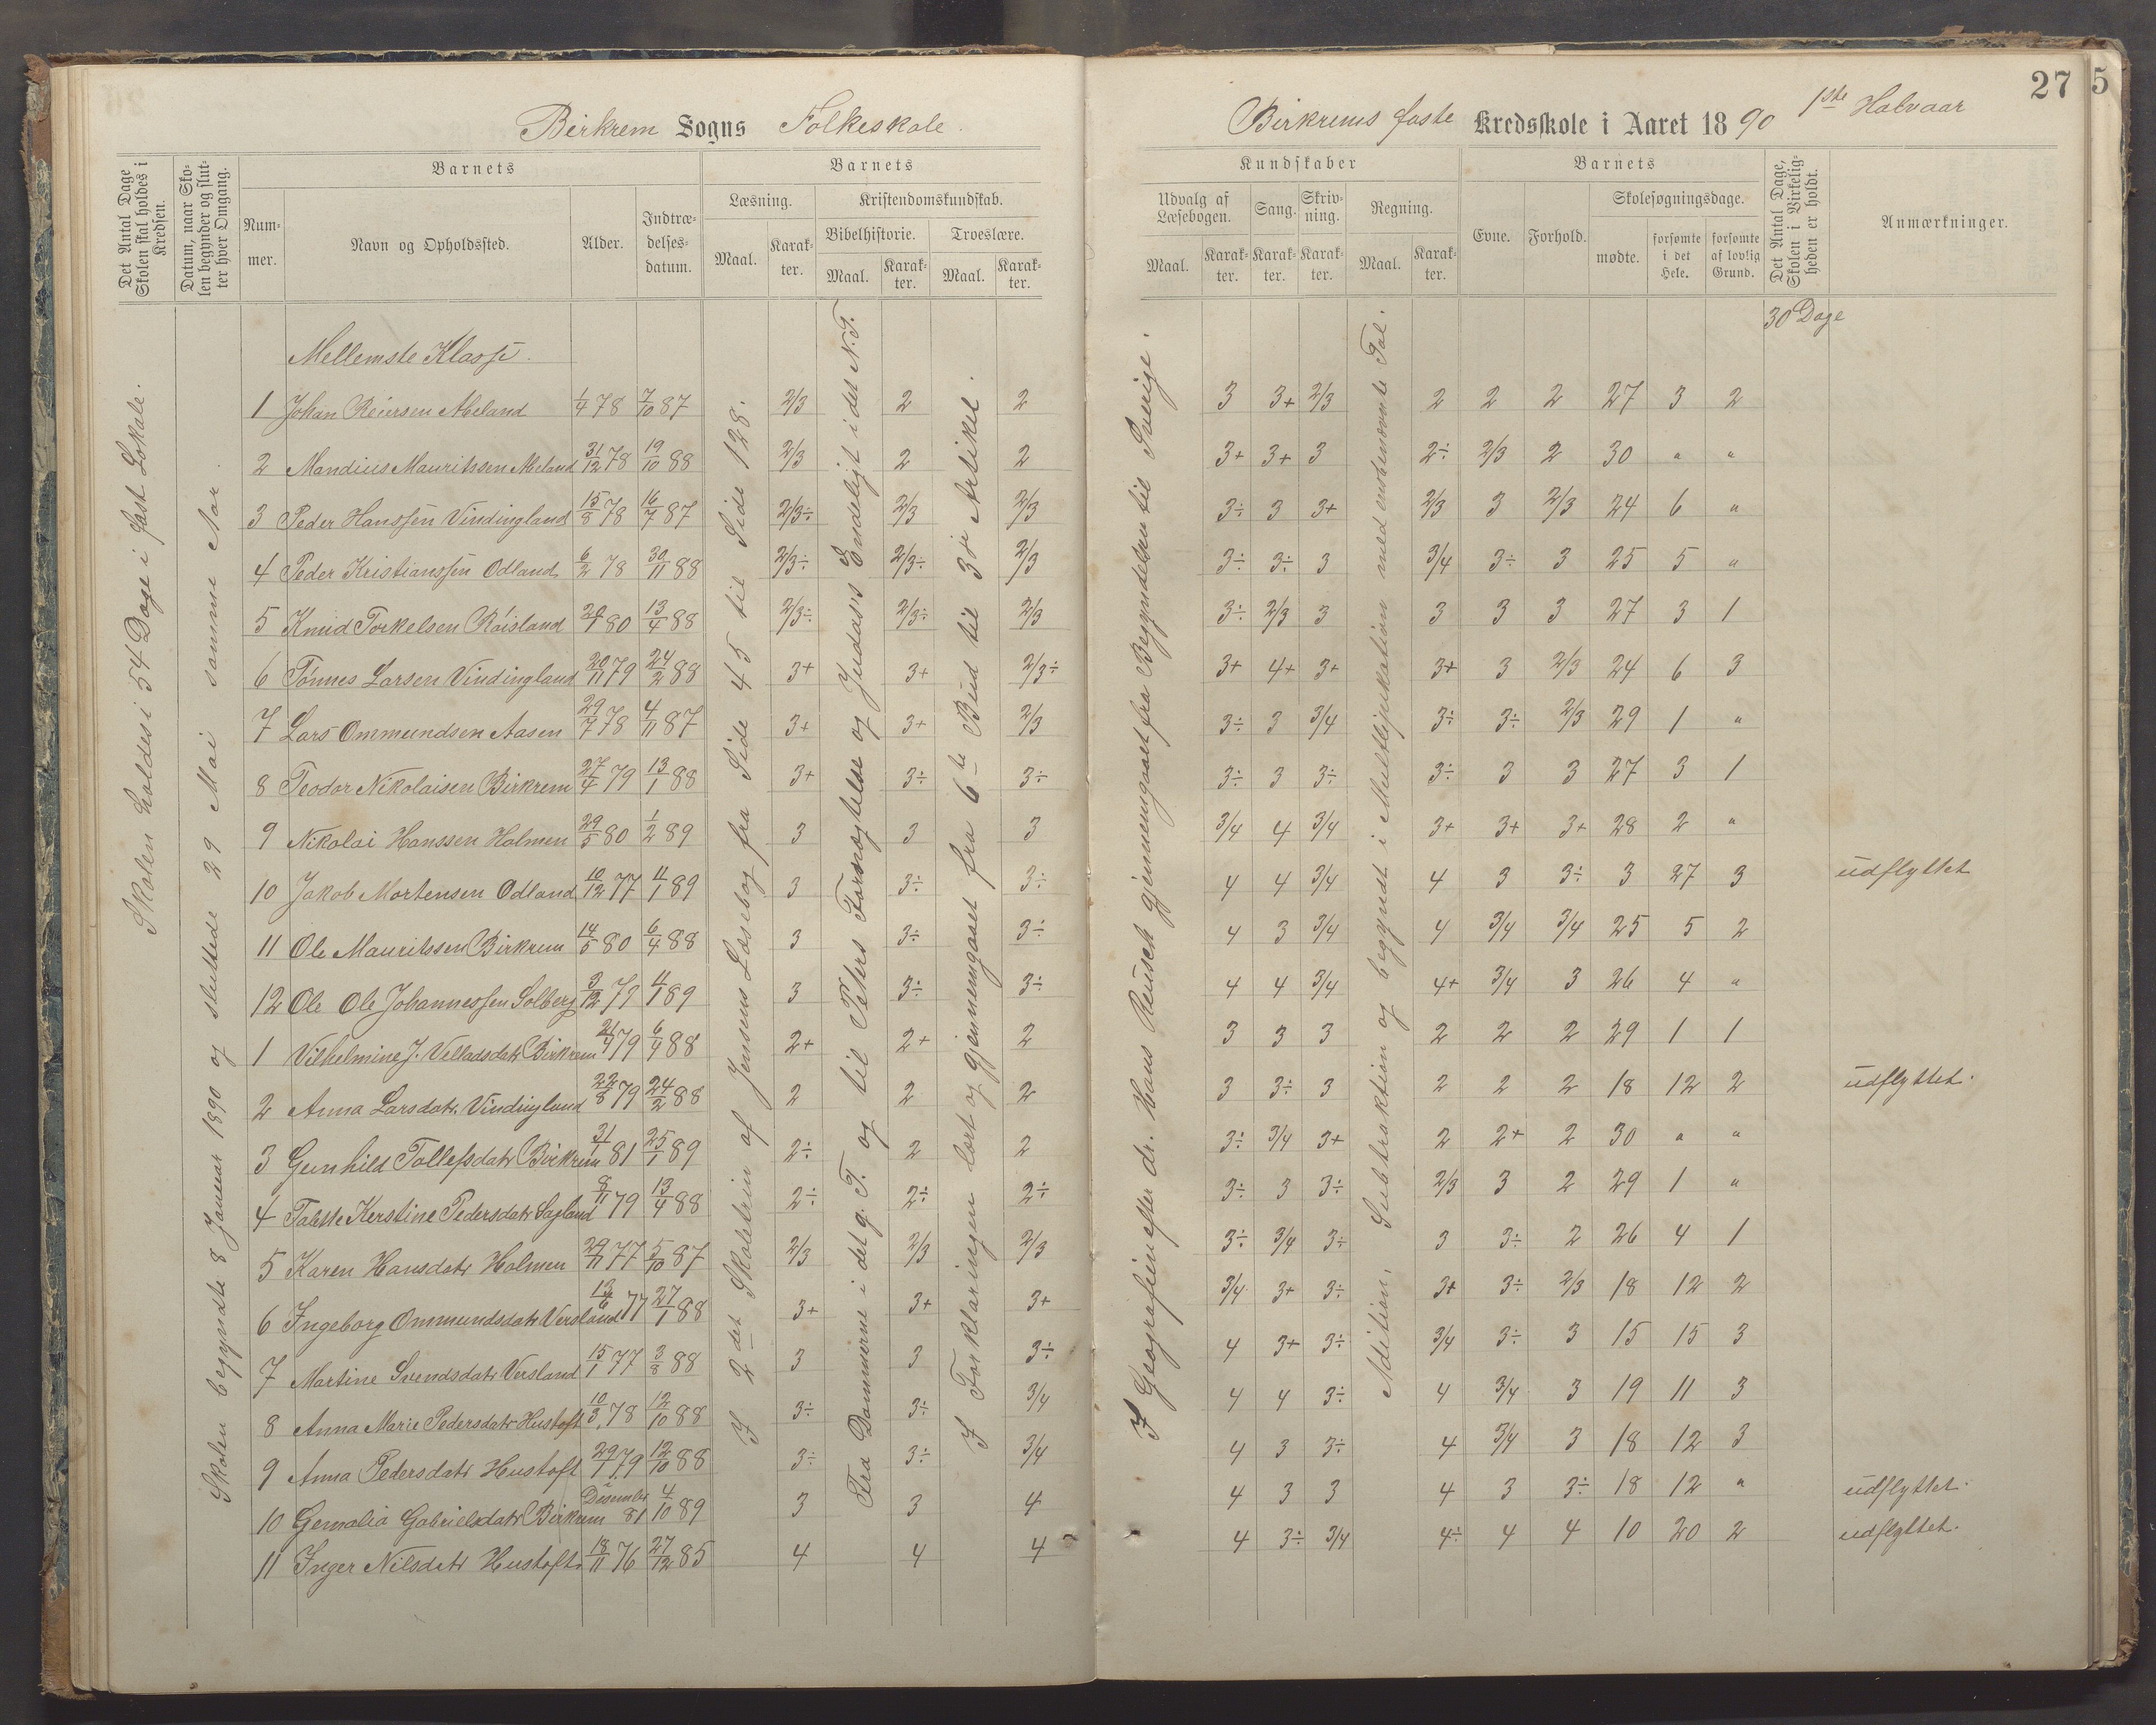 Birkrem Sogns Folkeskole.
Det Antal Dage Skolen skal holdes i Kredsen.
Datum, naar Skolen begynder og slutter hver Omgang.
Barnets
Nummer.
Navn og Opholdssted.
Alder.
Indtrædelsesdatum.
Barnets
Læsning.
Maal.
Karakter.
Kristendomskundskab.
Bibelhistorie.
Maal.
Karakter.
Troeslære.
Maal.
Karakter.
Skolen holdes i 54 Dage i fast Lokale.
Skolen begyndte 8 Januar 1890 og sluttede 29 Mai samme Aar.
I 2det Skoletrin af Jensens Læsebog fra Side 45 til Side 128.
Fra Dommerne i det g. T. og til Peters Fornægtelse og Judas's Endeligt i det N.T.
I Forklaringen lært og gjennemgaaet fra 6te Bud til 3die Artikel.
Mellemste Klasse.
1 Johan Reiersen Meland 1/4 78 7/10 87 2/3 2 2
2 Mandius Mauritssen Meland 31/12 78 19/10 88 2/3 2 2
3 Peder Hanssen Vindingland 15/8 78 16/7 87 2/3÷ 2/3 2/3
4 Peder Kristianssen Odland 6/2 78 30/11 88 2/3÷ 2/3÷ 2/3
5 Knud Torkelsen Røisland 29/1 80 13/4 88 2/3÷ 2/3÷ 2/3
6 Tønnes Larsen Vindingland 20/11 79 24/2 88 3+ 3+ 2/3÷
7 Lars Ommundsen Aasen 29/7 78 4/11 87 3+ 3+ 2/3
8 Teodor Nikolaisen Birkrem 27/4 79 13/1 88 3+ 3÷ 3÷
9 Nikolai Hanssen Holmen 29/5 80 1/2 89 3 3 3
10 Jakob Mortensen Odland 10/12 77 4/1 89 3 3÷ 3÷
11 Ole Mauritssen Birkrem 14/5 80 6/4 88 3 3÷ 3÷
12 Ole Ole Johannessen Solberg 3/12 79 4/1 89 3 3÷ 3÷
1 Vilhelmine J. Velladsdatr Birkrem 21/4 79 6/4 88 2+ 2+ 2
2 Anna Larsdatr. Vindingland 22/8 79 24/2 88 2 2 2
3 Gunhild Tollefsdatr Birkrem 31/1 81 25/1 89 2÷ 2 2
4 Talette Kerstine Pedersdatr Sagland 8/11 79 13/4 88 2÷ 2÷ 2÷
5 Karen Hansdatr Holmen 29/11 77 5/10 87 2/3 2/3 2/3
6 Ingeborg Ommundsdatr Versland 13/6 77 27/1 88 3+ 3+ 3+
7 Martine Svendsdatr Versland 15/1 77 3/8 88 3 3 3÷
8 Anna Marie Pedersdatr Hustoft 10/3 78 12/10 88 3÷ 3÷ 3/4
9 Anna Pedersdatr Hustoft 29/1 79 12/10 88 3÷ 3÷ 3/4
10 Gemalia Gabrielsdatr Birkrem Desember 81 4/10 89 3 3 4
11 Inger Nilsdatr Hustoft 18/11 76 27/12 85 4 4 4
Birkrems faste Kredsskole i Aaret 1890 1ste Halvaar
27
5
Kundskaber
Udvalg af Læsebogen.
Maal.
Karakter.
Sang.
Karakter.
Skrivning.
Karakter.
Regning.
Maal.
Karakter.
Barnets
Evne.
Forhold.
Skolesøgningsdage.
mødte.
forsømte i det Hele.
forsømte af lovlig Grund.
Det Antal Dage, Skolen i Virkeligheden er holdt.
Anmærkninger.
30 Dage
I Geografien efter dr. Hans Reusch gjennemgaaet fra Begyndelsen til Sverige.
Adition, Subtraktion og begyndt i Multliplikation med ensbenævnte Tal.
3 3+ 2/3 2 2 2 27 3 2
3+ 3+ 3 2÷ 2/3 2 30 " "
3÷ 3 3+ 2/3 3 2/3 24 6 "
3÷ 3÷ 3 3/4 3÷ 3 25 5 "
3÷ 2/3 3 3 3 3 27 3 1
3+ 4+ 3+ 3+ 3 2/3 24 6 3
3÷ 3 3/4 3÷ 3÷ 2/3 29 1 "
3÷ 3 3÷ 3÷ 3 3 27 3 1
3/4 4 3/4 3+ 3+ 3+ 28 2 "
4 4 3/4 4 3 3÷ 3 27 3 udflyttet
4 3 3/4 4 3/4 3/4 25 5 2
4 4 3/4 4+ 3/4 3 26 4 "
3 3 3 2 2 2 29 1 1
3 3÷ 3 2 2 2 18 12 2 udflyttet.
3÷ 3/4 3+ 2 2+ 2 30 " "
3÷ 3 3÷ 2/3 3 2 29 1 "
3÷ 3/4 3÷ 3 3÷ 2 26 4 1
3/4 3+ 3÷ 3+ 3÷ 2/3 18 12 2
4 3+ 3÷ 3/4 3÷ 3 15 15 3
4 4 3÷ 4 3/4 3 19 11 3
4 3 3÷ 4 3/4 3 18 12 3
4 3 3 4 3 3÷ 18 12 " udflyttet.
4 3÷ 3/4 4÷ 4 4 10 20 2 udflyttet.